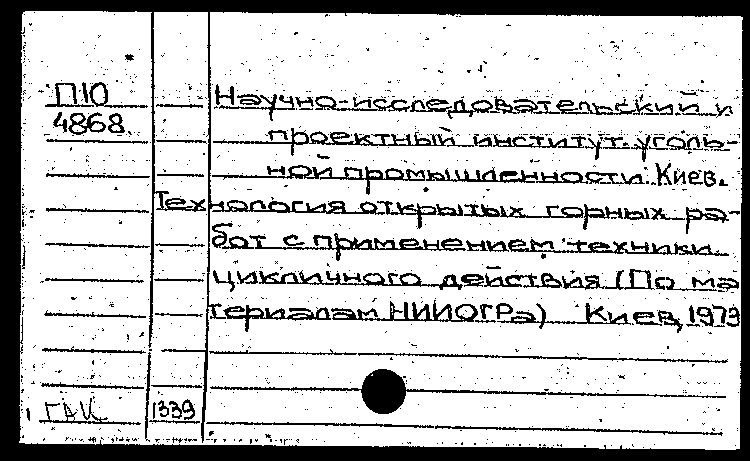 П10 Научно-исследовательский и
4868 проектный институт уголь-
ной промышленности. Киев.
Технология открытых горных ра-
бот с применением техники
цикличного действия (По ма
териалам НИИОГРа) Киев, 1973
ГАК 1339